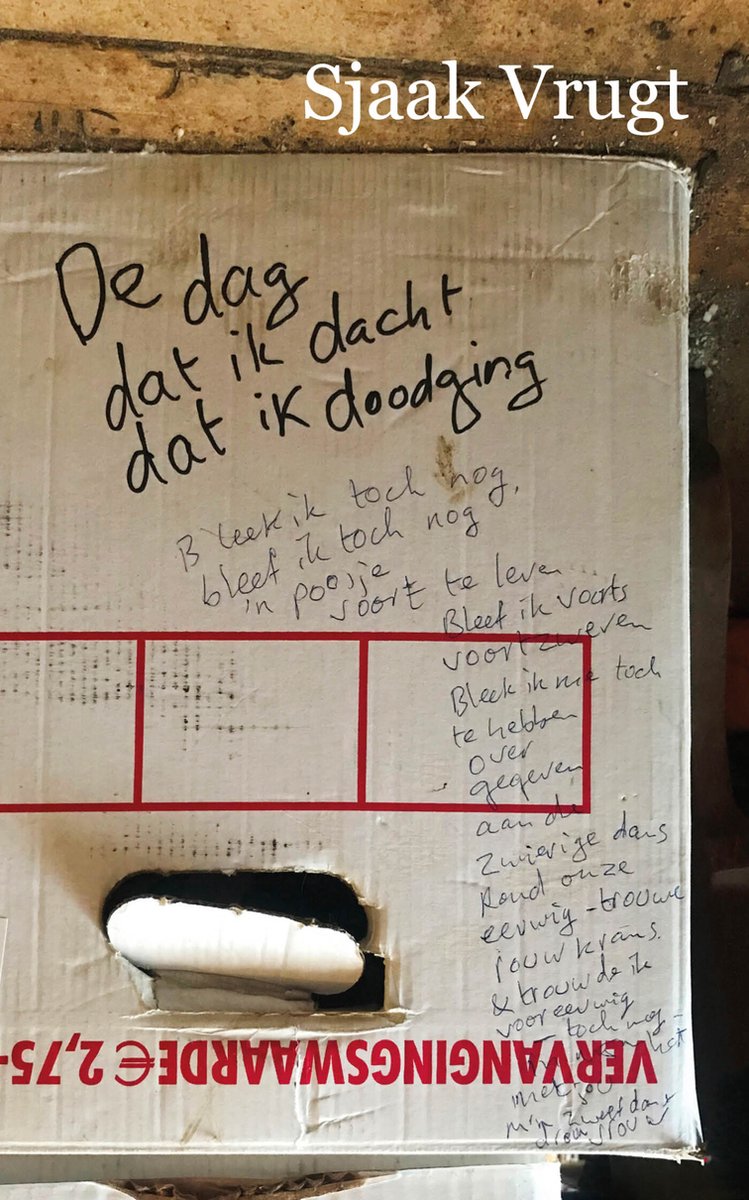 Sjaak Vrugt
De dag
dat ik dacht
dat ik doodging
Bleek ik toch nog,
bleef ik toch nog
in poosje
voort te leven
Bleef ik voorts
voortzweven
Bleek ik me toch
te hebben
over
gegeven
aan de
zwierige dans
Rond onze
eeuwig-trouwe
rouwkrans.
& trouwde ik
voor eeuwig
– toch nog –
met jou
VERVANGINGSWAARDE € 2,75